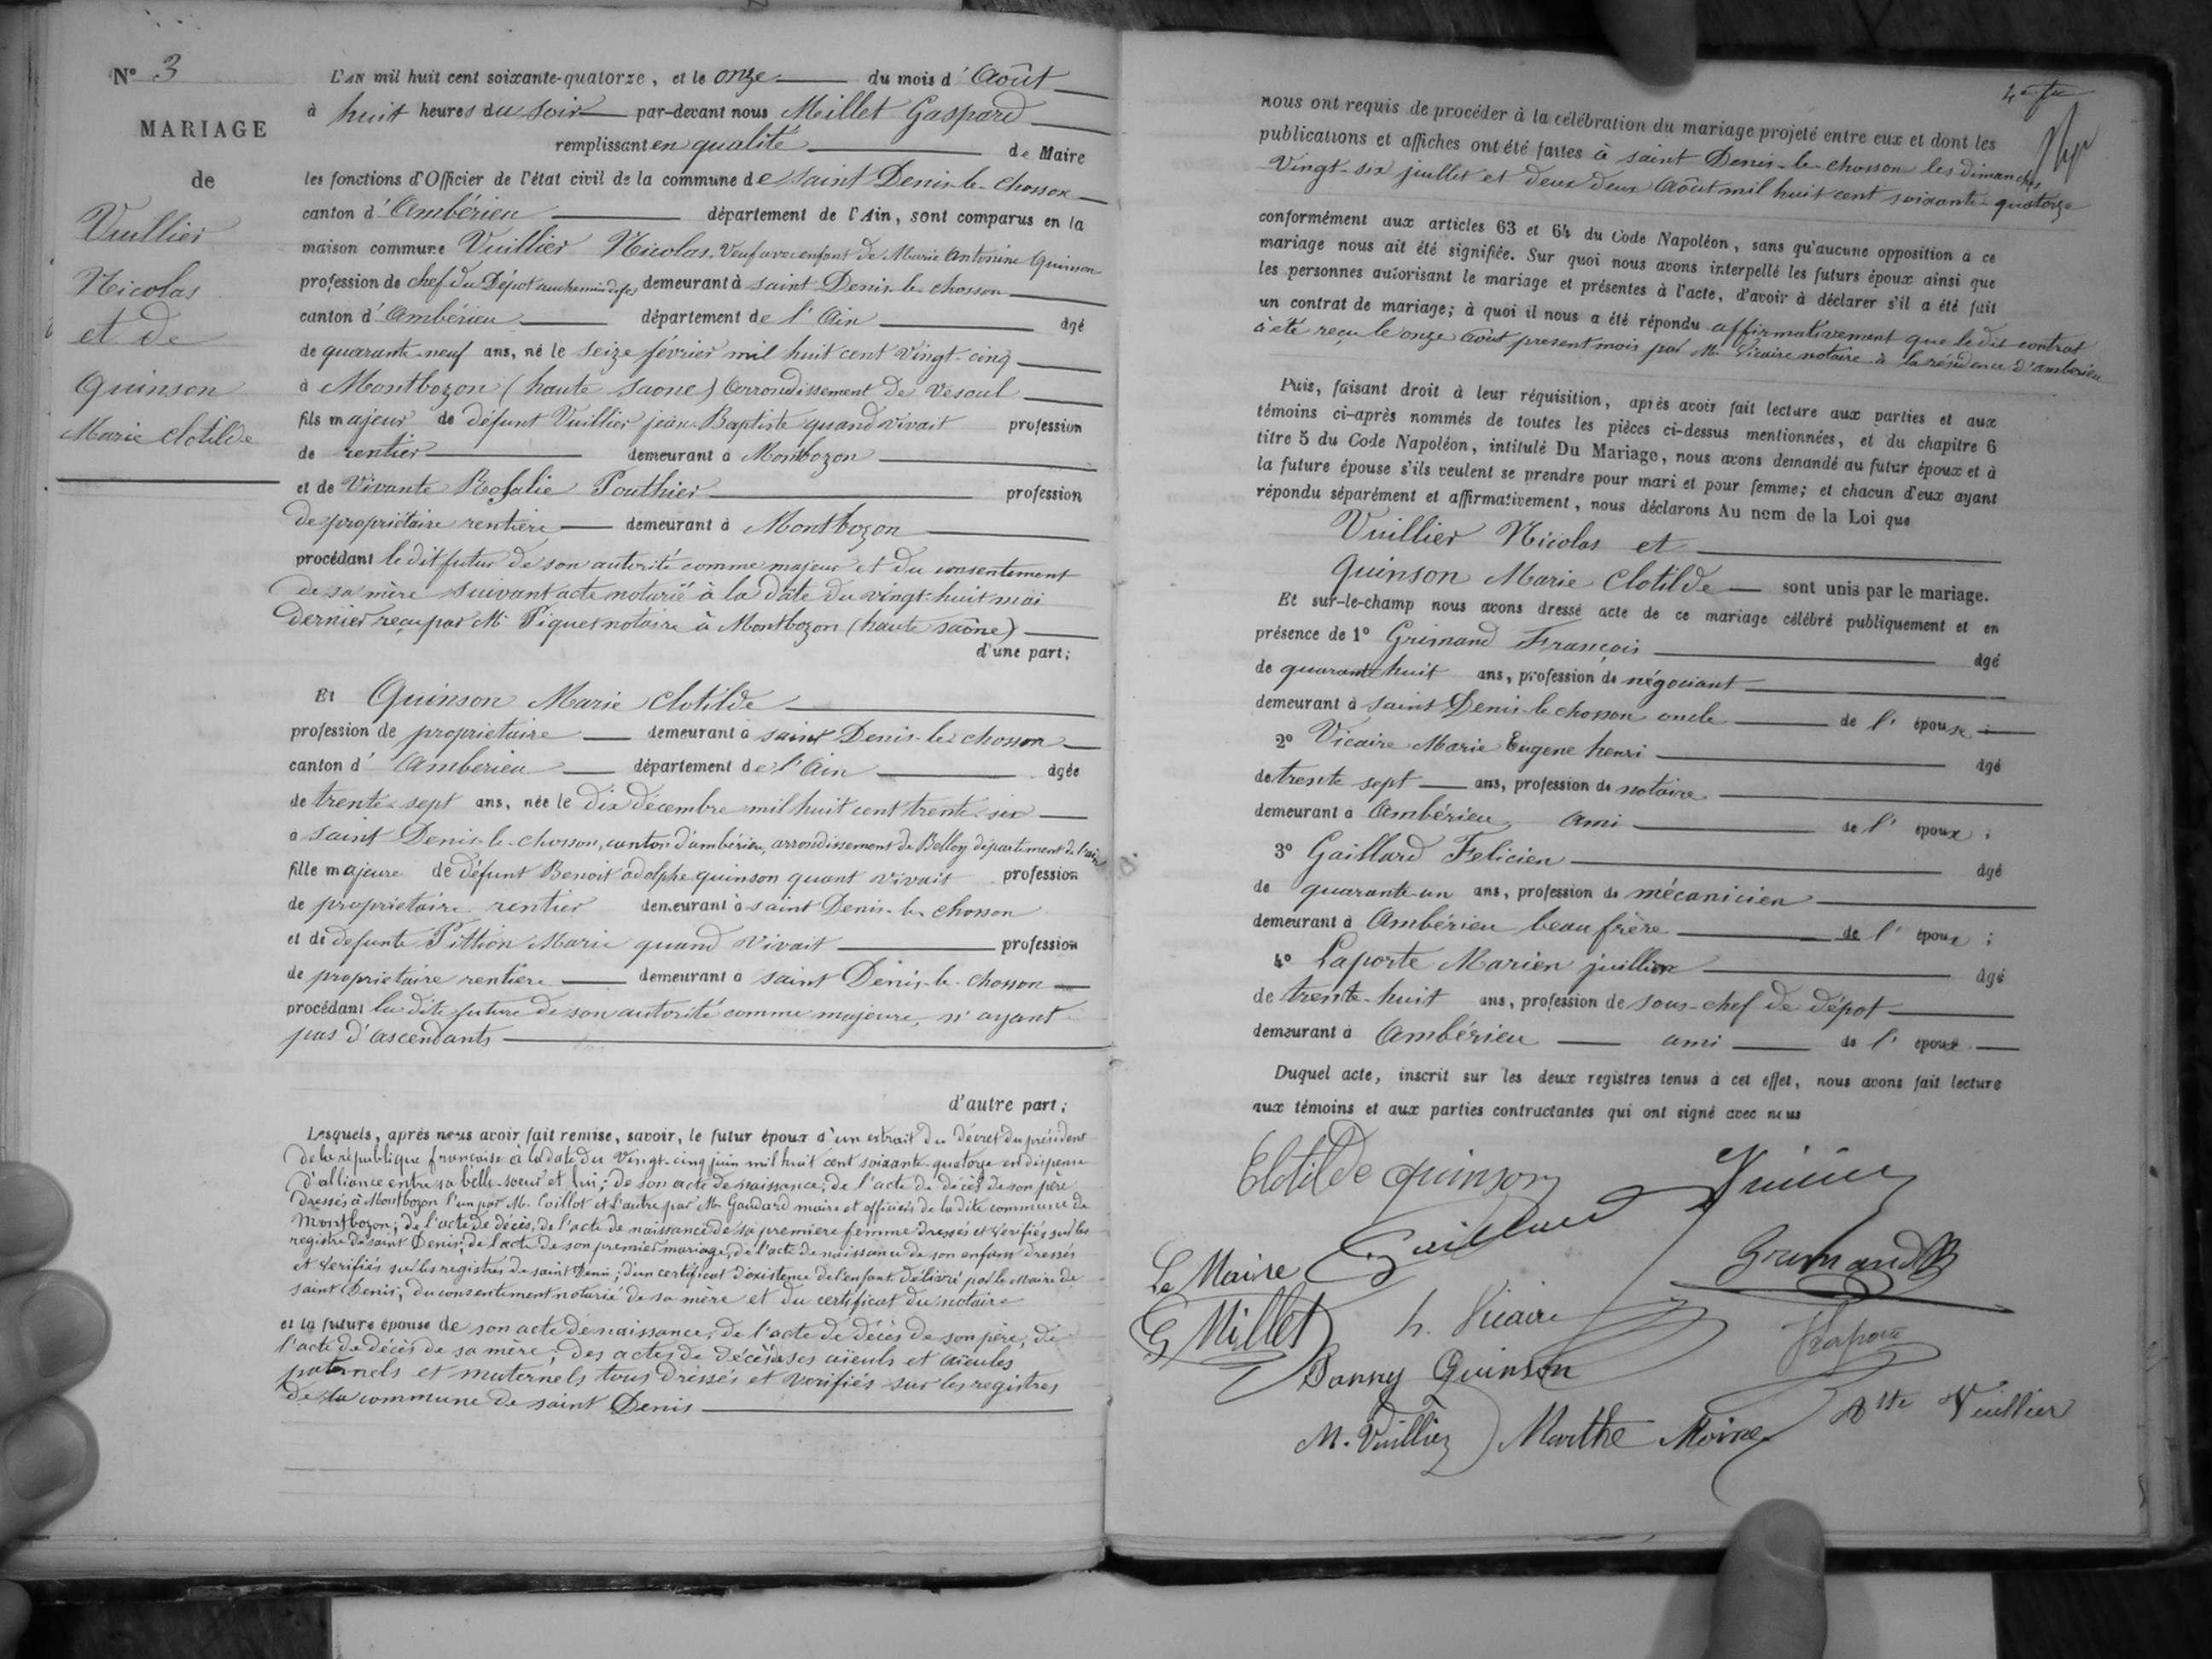 N° 3
MARIAGE
de
Vuillier
Nicolas
et de
Quinson
Marie Clotilde
L'AN mil huit cent soixante-quatorze, et le onze du mois d'Août
à huit heures du soir par-devant nous Millet Gaspard
remplissant en qualité de Maire
les fonctions d'Officier de l'état civil de la commune de Saint Denis-le-Chosson
canton d'Ambérieu département de l'Ain, sont comparus en la
maison commune Vuillier Nicolas, Veuf avec enfant de Marie Antonine Quinson
profession de chef du Dépôt au chemin de fer demeurant à Saint Denis-le-chosson
canton d'Ambérieu département de l'Ain âgé
de quarante-neuf ans, né le seize février mil huit cent vingt-cinq
à Montbozon (haute Saone) Corrondissement de Vesoul
fils majeur de défunt Vuillier jean-Baptiste quand vivait profession
de rentier demeurant à Monbozon
et de Vivante Rosalie Pouthier profession
de propriétaire rentière demeurant à Montbozon
procédant le dit futur de son autorité comme majeur et du consentement
de sa mère suivant acte notarié à la date du vingt-huit mai
dernier reçu par Me Piquet notaire à Montbozon (haute saône)
d'une part;
Et Quinson Marie Clotilde
profession de propriétaire demeurant à saint Denis-le-chosson
canton d'Amberieu département de l'Ain âgée
de trente-sept ans, née le dix décembre mil huit cent trente-six
à Saint Denis-le-chosson, canton d'ambérieu, arrondissement de Belley département de l'ain
fille majeure de défunt Benoit adolphe quinson quant vivait profession
de proprietaire rentier demeurant à saint Denis-le-chosson
et de defunte Pittion Marie quand vivait profession
de proprietaire rentière demeurant à saint Denis-le-chosson
procédant la dite future de son autorité comme majeure, n'ayant
pas d'ascendants
d'autre part;
Lesquels, après nous avoir fait remise, savoir, le futur époux d'un extrait du décret du président
de la république française à la date du Vingt-cinq juin mil huit cent soixante-quatorze en dispense
d'alliance entre sa belle-soeur et lui; de son acte de naissance; de l'acte de décès de son père
dressés à Montbozon l'un par M. Caillot et l'autre par Mr Gaudard maire et officiers de la dite commune de
Montbozon; de l'acte de décès, de l'acte de naissance de sa première femme dressés et vérifiés sur les
registre de saint Denis; de l'acte de son premier mariage, de l'acte de naissance de son enfant dressés
et verifiés sur les registres de saint Denis; d'un certificat d'existence de l'enfant délivré par le Maire de
saint Denis; du consentement notarié de sa mère et du certificat du notaire
et la future épouse de son acte de naissance, de l'acte de décès de son père, de
l'acte de décès de sa mère; des actes de décès de ses aïeuls et aïeules
paternels et maternels tous dressés et verifiés sur les registres
de la commune de saint Denis
nous ont requis de procéder à la célébration du mariage projeté entre eux et dont les
publications et affiches ont été faites à saint Denis-le-chosson les dimanches
Vingt-six juillet et deux deux Août mil huit cent soixante-quatorze
conformément aux articles 63 et 64 du Code Napoléon, sans qu'aucune opposition à ce
mariage nous ait été signifiée. Sur quoi nous avons interpellé les futurs époux ainsi que
les personnes autorisant le mariage et présentes à l'acte, d'avoir à déclarer s'il a été fait
un contrat de mariage; à quoi il nous a été répondu affirmativement que le dit contrat
à été reçu le onze août present mois par M. Vicaire notaire à la résidence d'amberieu
Puis, faisant droit à leur réquisition, après avoir fait lecture aux parties et aux
témoins ci-après nommés de toutes les pièces ci-dessus mentionnées, et du chapitre 6
titre 5 du Code Napoléon, intitulé Du Mariage, nous avons demandé au futur époux et à
la future épouse s'ils veulent se prendre pour mari et pour femme; et chacun d'eux ayant
répondu séparément et affirmativement, nous déclarons Au nom de la Loi que
Vuillier Nicolas et
Quinson Marie Clotilde sont unis par le mariage.
Et sur-le-champ nous avons dressé acte de ce mariage célébré publiquement et en
présence de 1° Grimand François âgé
de quarante huit ans, profession de négociant
demeurant à saint Denis-le chosson oncle de l'épouse;
2° Vicaire Marie Eugene henri âgé
de trente sept ans, profession de notaire
demeurant à Ambérieu ami de l'époux;
3° Gaillard Felicien âgé
de quarante-un ans, profession de mécanicien
demeurant à Ambérieu beau frère de l'époux;
4° Laporte Marien juillien âgé
de trente-huit ans, profession de sous-chef de dépot
demeurant à Ambérieu ami de l'époux
Duquel acte, inscrit sur les deux registres tenus à cet effet, nous avons fait lecture
aux témoins et aux parties contractantes qui ont signé avec nous
Clotilde quinson Vuillier
Gaillard
Le Maire Grimand
G Millet h. Vicaire Laporte
Danny Quinson
M. Vuillier Marthe Moine Bte Vuillier